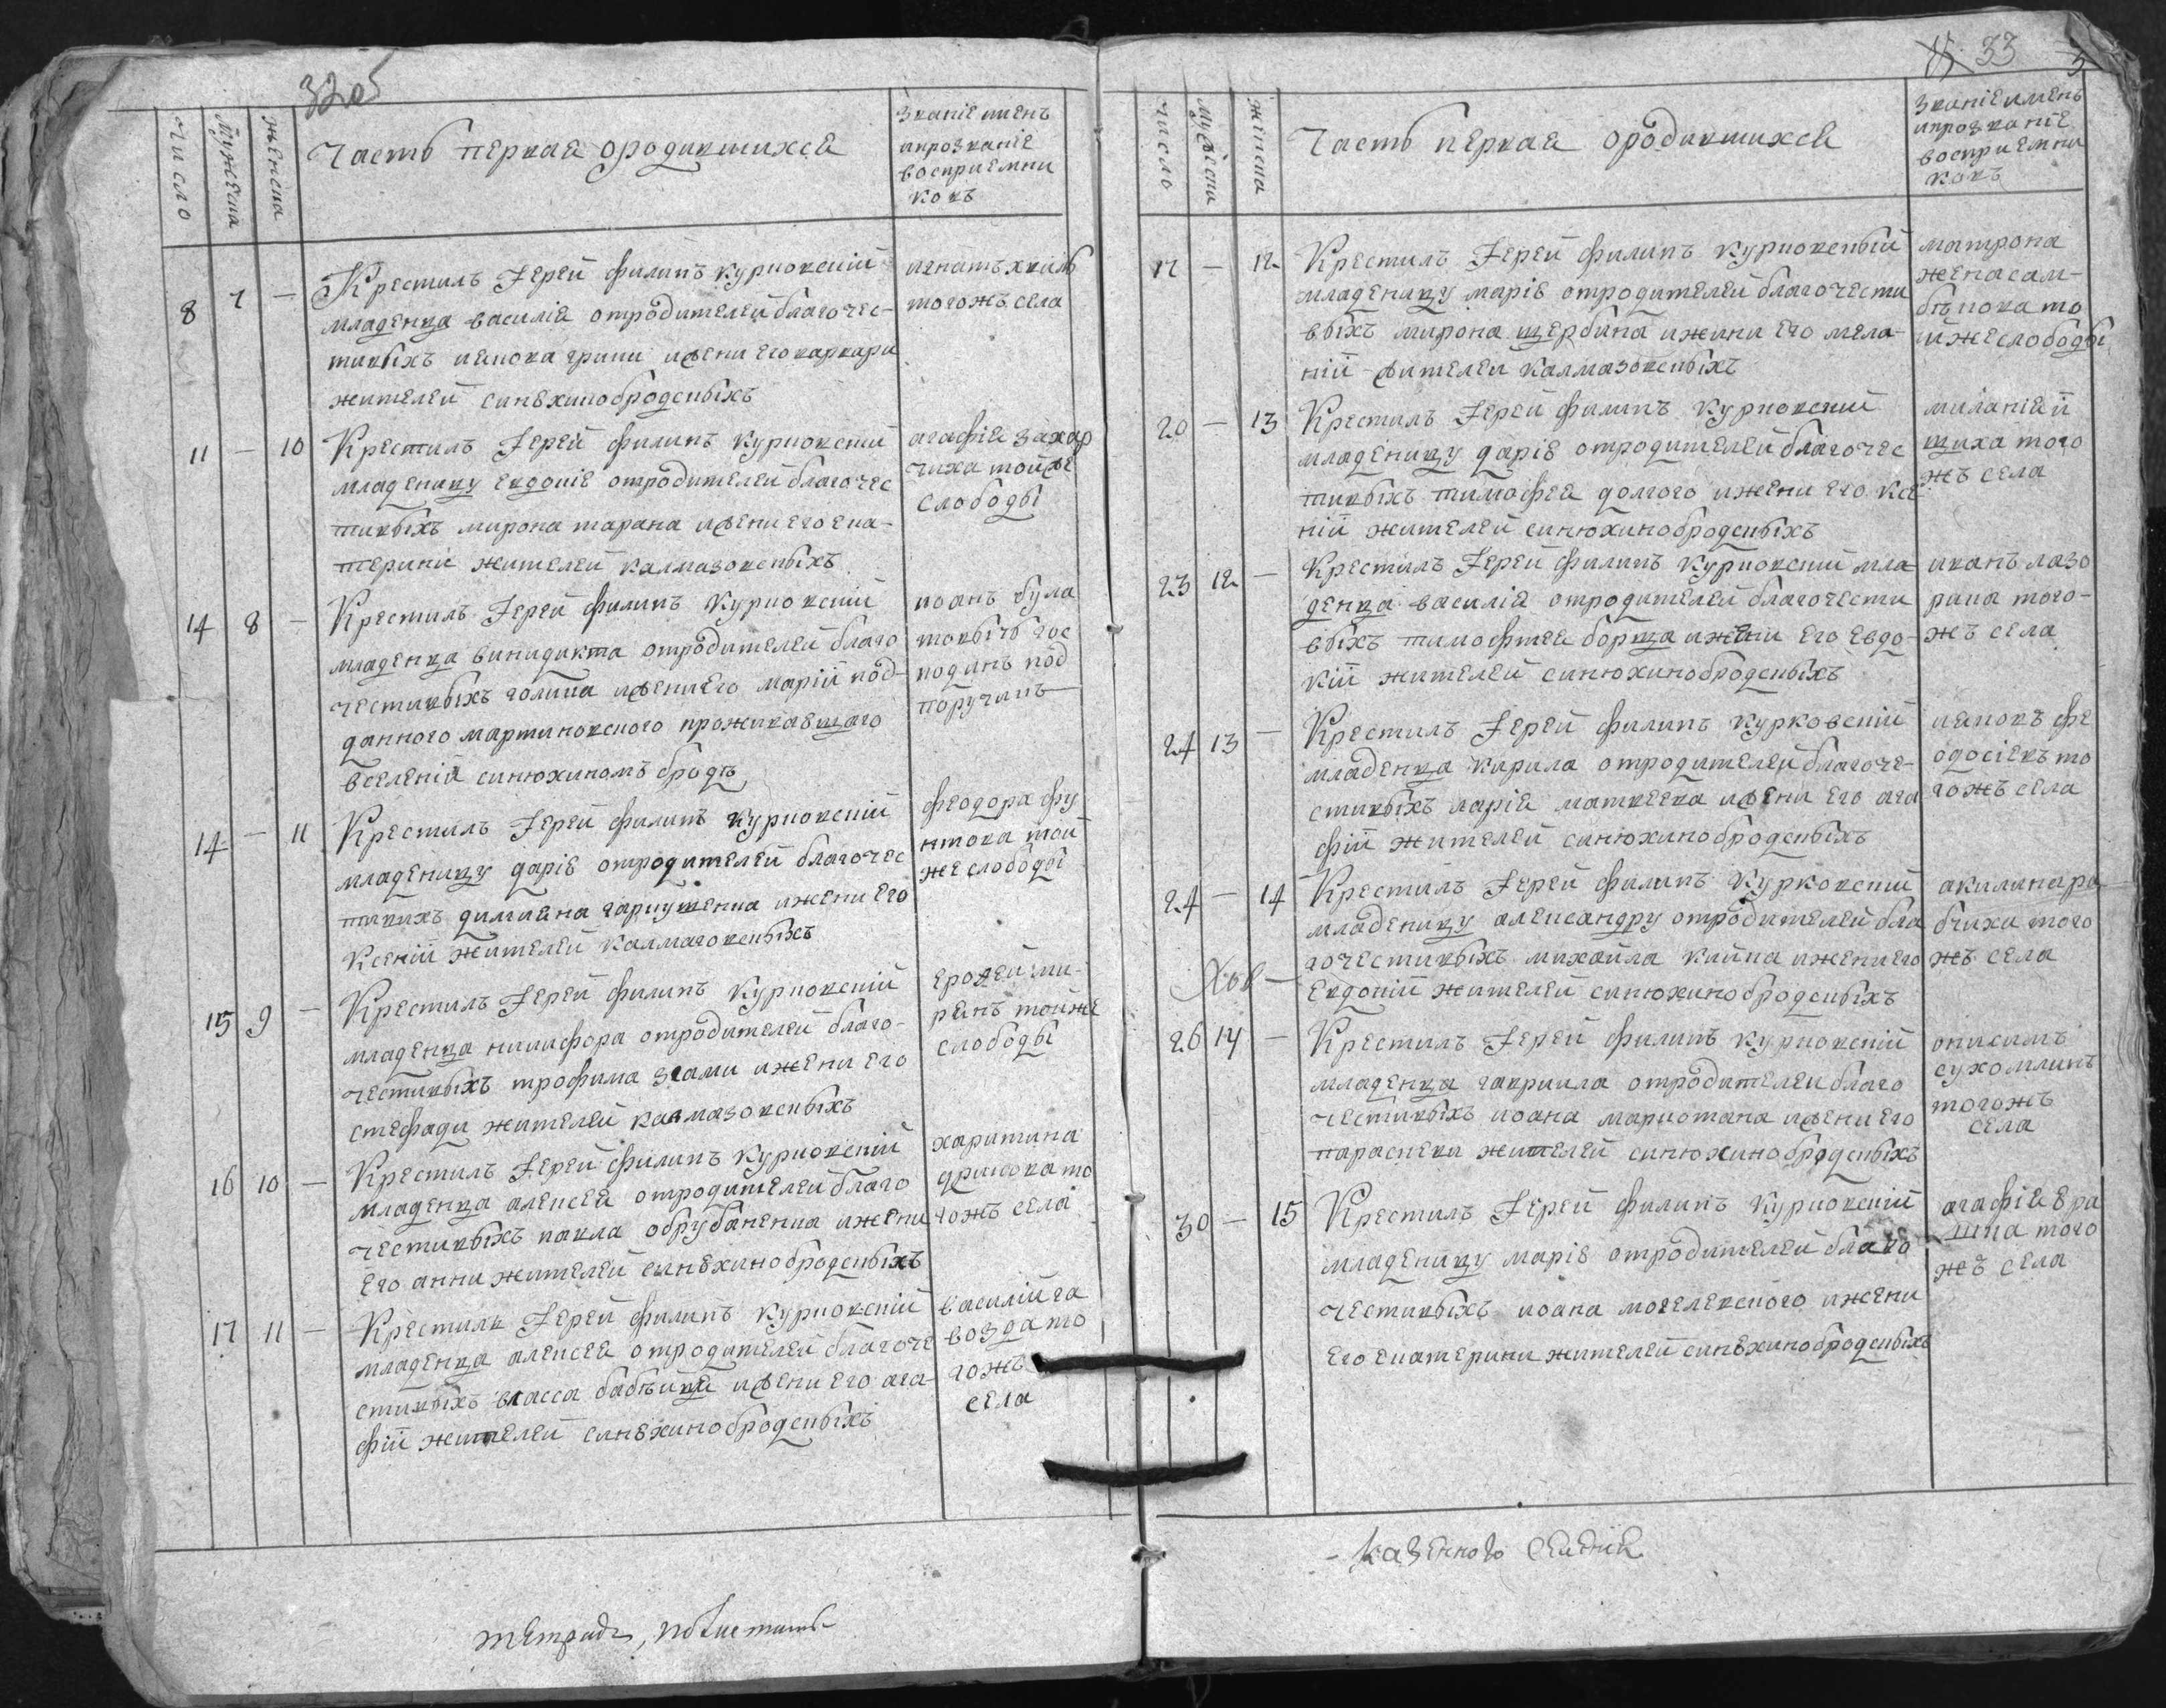 32об
число
мужеска
женска
Часть первая ородившихся
званіе имень
ипрозваніе
восприемни
ковъ
8 7 — Крестилъ Іерей филипъ курковскій
младенца василія отродителей благочес-
тивыхъ якова грини ижени его варвари
жителей синѣхинобродскыхъ
игнатъ хвиль
тогожъ села
11 — 10 Крестилъ Іерей филипъ курковскій
младеницу евдокіе отродителей благочес
тивыхъ мирона тарана ижени его ека-
терини жителей калмазовскыхъ
агафія захар
чиха тойже
слободы
14 8 — Крестилъ Іерей филипъ курковскій
младенца винидикта отродителей благо
честивыхъ голика ижени его маріи под-
данного мартиновского проживавшаго
вселеній синюхиномъ бродѣ
иоанъ була
товычь гос
подинъ под
поручикъ
14 — 11 Крестилъ Іерей филипъ курковскій
младеницу даріе отродителей благочес
тивихъ димияна гаркушенка ижени его
ксеніи жителей калмазовскыхъ
феодора фу
нтова той
же слободы
15 9 — Крестилъ Іерей филипъ курковскій
младенца никифора отродителей благо-
честивыхъ трофима згами ижени его
стефади жителей калмазовскыхъ
ерофей ми-
рянъ тойже
слободы
16 10 — Крестилъ Іерей филипъ курковскій
младенца алексея отродителей благо
честивыхъ павла обрубаненка ижени
его анни жителей синѣхинобродскыхъ
харитина
дрикова то
гожъ села
17 11 — Крестилъ Іерей филипъ курковскій
младенца алексея отродителей благоче
стивыхъ власса бабѣйця ижени его ага-
фіи жителей синѣхинобродскыхъ
василій га
возда то
гожъ
села
тетрадь,
33
число
мужески
женска
Часть первая ородившихся
званіе имень
ипрозваніе
восприемни
ковъ
17 — 12 Крестилъ Іерей филипъ курковскый
младеницу маріе отродителей благочести
выхъ мирона щербина ижини его мела-
ніи жителей калмазовскыхъ
матрона
жена сам-
бѣкова то
йже слободы
20 — 13 Крестилъ Іерей филипъ курковский
младеницу даріе отродителей благочес
тивыхъ тимофея долгого ижени его ксе
ніи жителей синюхинобродскыхъ
миланія й
щиха того
жъ села
23 12 — Крестилъ Іерей филипъ курковский мла
денца василія отродителей благочести
выхъ тимофтея борща ижени его евдо-
кіи жителей синюхинобродскыхъ
иванъ лазо
рика того-
жъ села
24 13 — Крестилъ Іерей филипъ курковскій
младенца кирила отродителей благоче-
стивыхъ ларія матвеева ижени его ага
фіи жителей синюхинобродскыхъ
яковъ фе
одосіевъ то
гожъ села
24 — 14 Крестилъ Іерей филипъ курковскій
младеницу александру отродителей бла
гочестивыхъ михайла кайна ижени его
евдокіи жителей синюхинобродскыхъ
акилина ря
бчиха того
жъ села
26 14 — Крестилъ Іерей филипъ курковскій
младенца гавриила отродителей благо
честивыхъ иоана мариотана ижени его
параскеви жителей синюхинобродскыхъ
онисимъ
сухомлинъ
тогожъ
села
30 — 15 Крестилъ Іерей филипъ курковскій
младеницу маріе отродителей благо
честивыхъ иоана могелевского ижени
его екатерини жителей синѣхинобродскыхъ
агафія яри
шна того
жъ села
- казенного